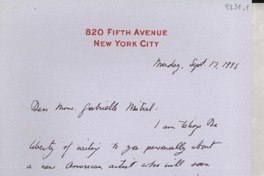 820 FIFTH AVENUE
NEW YORK CITY
Monday, Sept. 17,
Dear Mme. Gabrielle Mistral:
I am taking the
liberty of writing to you personally about
a new American artist who will soon